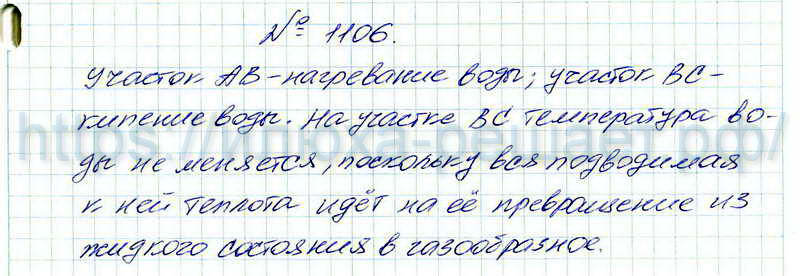 № 1106.
Участок АВ – нагревание воды; участок ВС –
кипение воды. На участке ВС температура во-
ды не меняется, поскольку вся подводимая
к ней теплота идёт на её превращение из
жидкого состояния в газообразное.